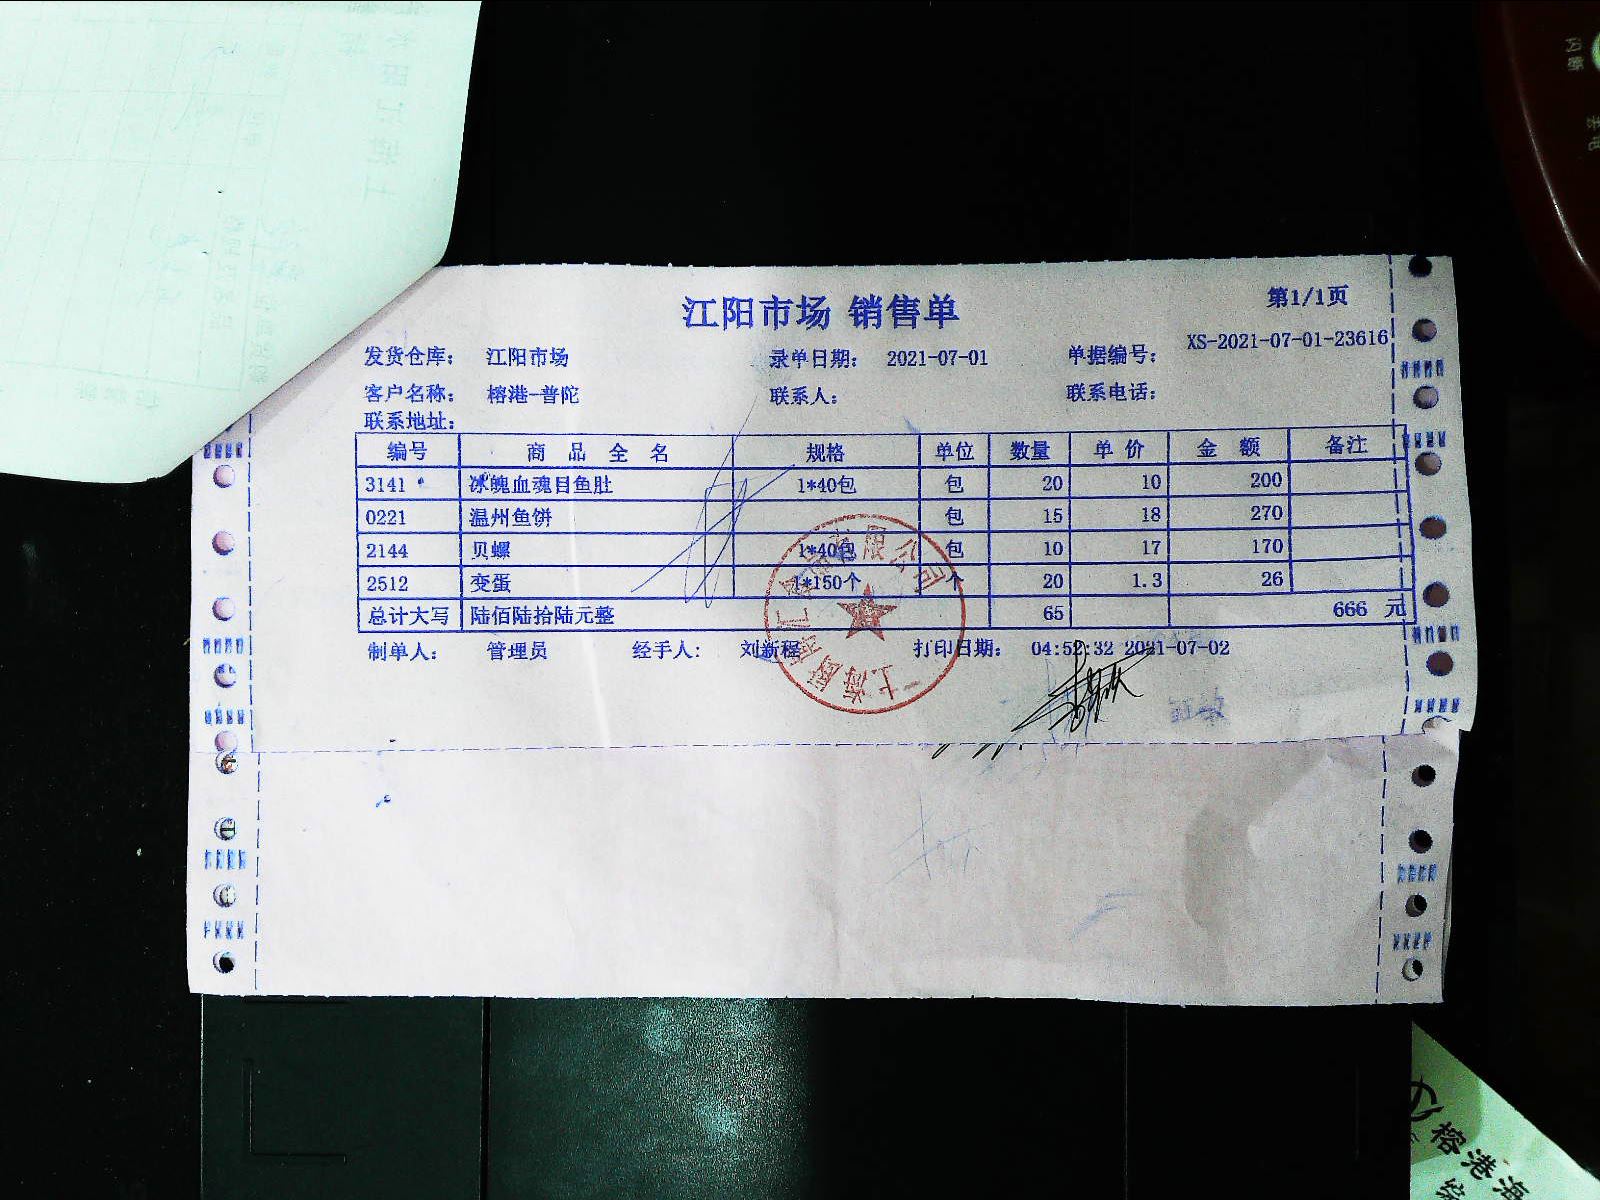 江阳市场 销售单
第1/1页
发货仓库: 江阳市场 录单日期: 2021-07-01 单据编号: XS-2021-07-01-23616
客户名称: 榕港-普陀 联系人: 联系电话:
联系地址:
编号 商品全名 规格 单位 数量 单价 金额 备注
3141 冰魄血魂目鱼肚 1*40包 包 20 10 200
0221 温州鱼饼 包 15 18 270
2144 贝螺 1*40包 包 10 17 170
2512 变蛋 1*150个 个 20 1.3 26
总计大写 陆佰陆拾陆元整 65 666 元
制单人: 管理员 经手人: 刘新程 打印日期: 04:52:32 2021-07-02
榕港海